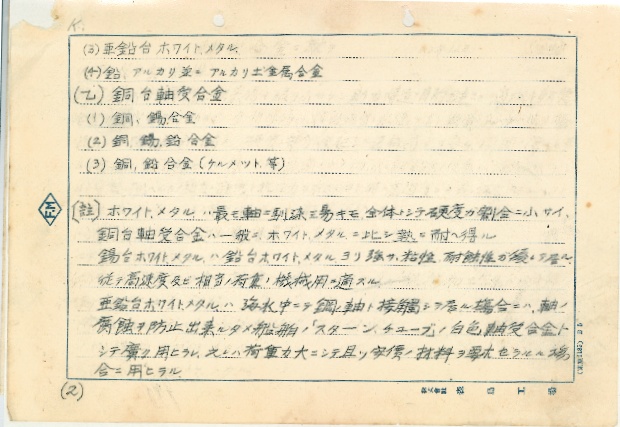 (3) 亜鉛台ホワイト、メタル、
(4) 鉛、アルカリ並ニアルカリ土金属合金
(乙) 銅台軸受合金
(1) 銅、錫合金
(2) 銅 錫、鉛合金
(3) 銅、鉛合金 (ケルメット等)
(註) ホワイト、メタル、ハ最モ軸ニ馴染ミ易キモ 全体トシテ硬度ガ割合ニ小サイ、
銅台軸受合金ハ一般ニ、ホワイト、メタル、ニ比シ熱ニ耐ヘ得ル
錫台ホワイト、メタル、ハ鉛台ホワイト、メタル ヨリ強サ、粘性、耐蝕性ガ優レテ居ル
従テ高速度及ビ相当ノ荷重ノ機械用ニ適スル、
亜鉛台ホワイトメタル、ハ 海水中ニテ鋼ノ軸ト接觸シテ居ル場合ニハ、軸ノ
腐蝕ヲ防止出来ルタメ船舶ノスターン、チューブノ白色軸受合金ト
シテ廣ク用ヒラレ、又ハ荷重力大ニシテ且ツ安價ノ材料ヲ要求セラルル場
合ニ用ヒラル
(2)
FM
株式會社